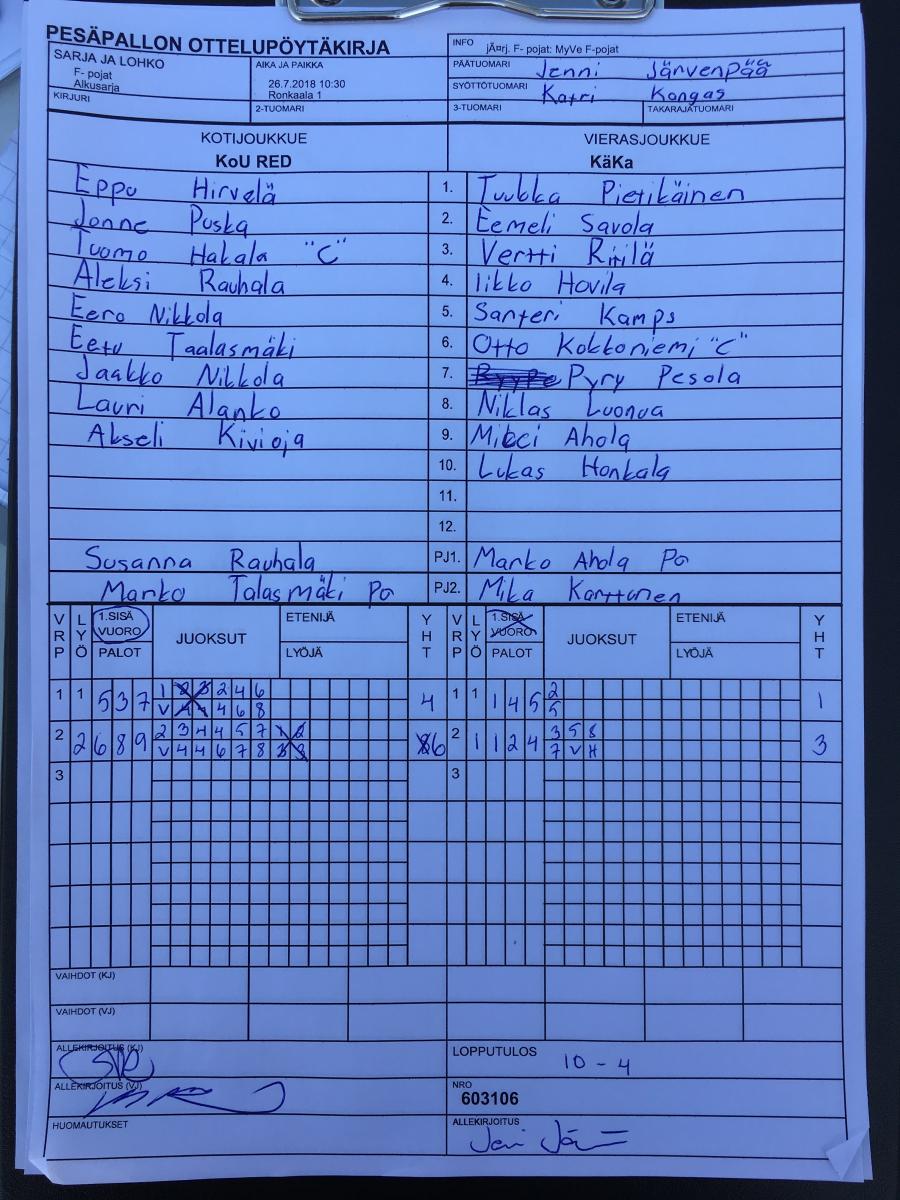 PESÄPALLON OTTELUPÖYTÄKIRJA
SARJA JA LOHKO
F- pojat
Alkusarja
KIRJURI
AIKA JA PAIKKA
26.7.2018 10:30
Ronkaala 1
2-TUOMARI
INFO jÃ¤rj. F- pojat: MyVe F-pojat
PÄÄTUOMARI Jenni Järvenpää
SYÖTTÖTUOMARI Katri Kangas
3-TUOMARI TAKARAJATUOMARI
KOTIJOUKKUE VIERASJOUKKUE
KoU RED KäKa
Eppu Hirvelä 1. Tuukka Pietikäinen
Jonne Puska 2. Eemeli Savola
Tuomo Hakala "C" 3. Vertti Riilä
Aleksi Rauhala 4. Iikko Hovila
Eero Nikkola 5. Santeri Kamps
Eetu Taalasmäki 6. Otto Kokkoniemi "C"
Jaakko Nikkola 7. Pyry Pesola
Lauri Alanko 8. Niklas Luonua
Akseli Kivioja 9. Micci Ahola
10. Lukas Honkala
11.
12.
Susanna Rauhala PJ1. Marko Ahola Po
Marko Talasmäki Po PJ2. Mika Karttunen
VRP LYÖ 1.SISÄ VUORO PALOT JUOKSUT ETENIJÄ LYÖJÄ YHT VRP LYÖ 1.SISÄ VUORO PALOT JUOKSUT ETENIJÄ LYÖJÄ YHT
1 1 5 3 7 1 2 3 2 4 6 4 1 1 1 4 5 2 1
V 4 4 4 6 8 5
2 2 6 8 9 2 3 4 4 5 7 1 2 6 2 1 1 2 4 3 5 8 3
V 4 4 6 7 8 3 3 7 V H
3 3
VAIHDOT (KJ)
VAIHDOT (VJ)
ALLEKIRJOITUS (KJ)
LOPPUTULOS 10 - 4
ALLEKIRJOITUS (VJ)
NRO
603106
HUOMAUTUKSET
ALLEKIRJOITUS